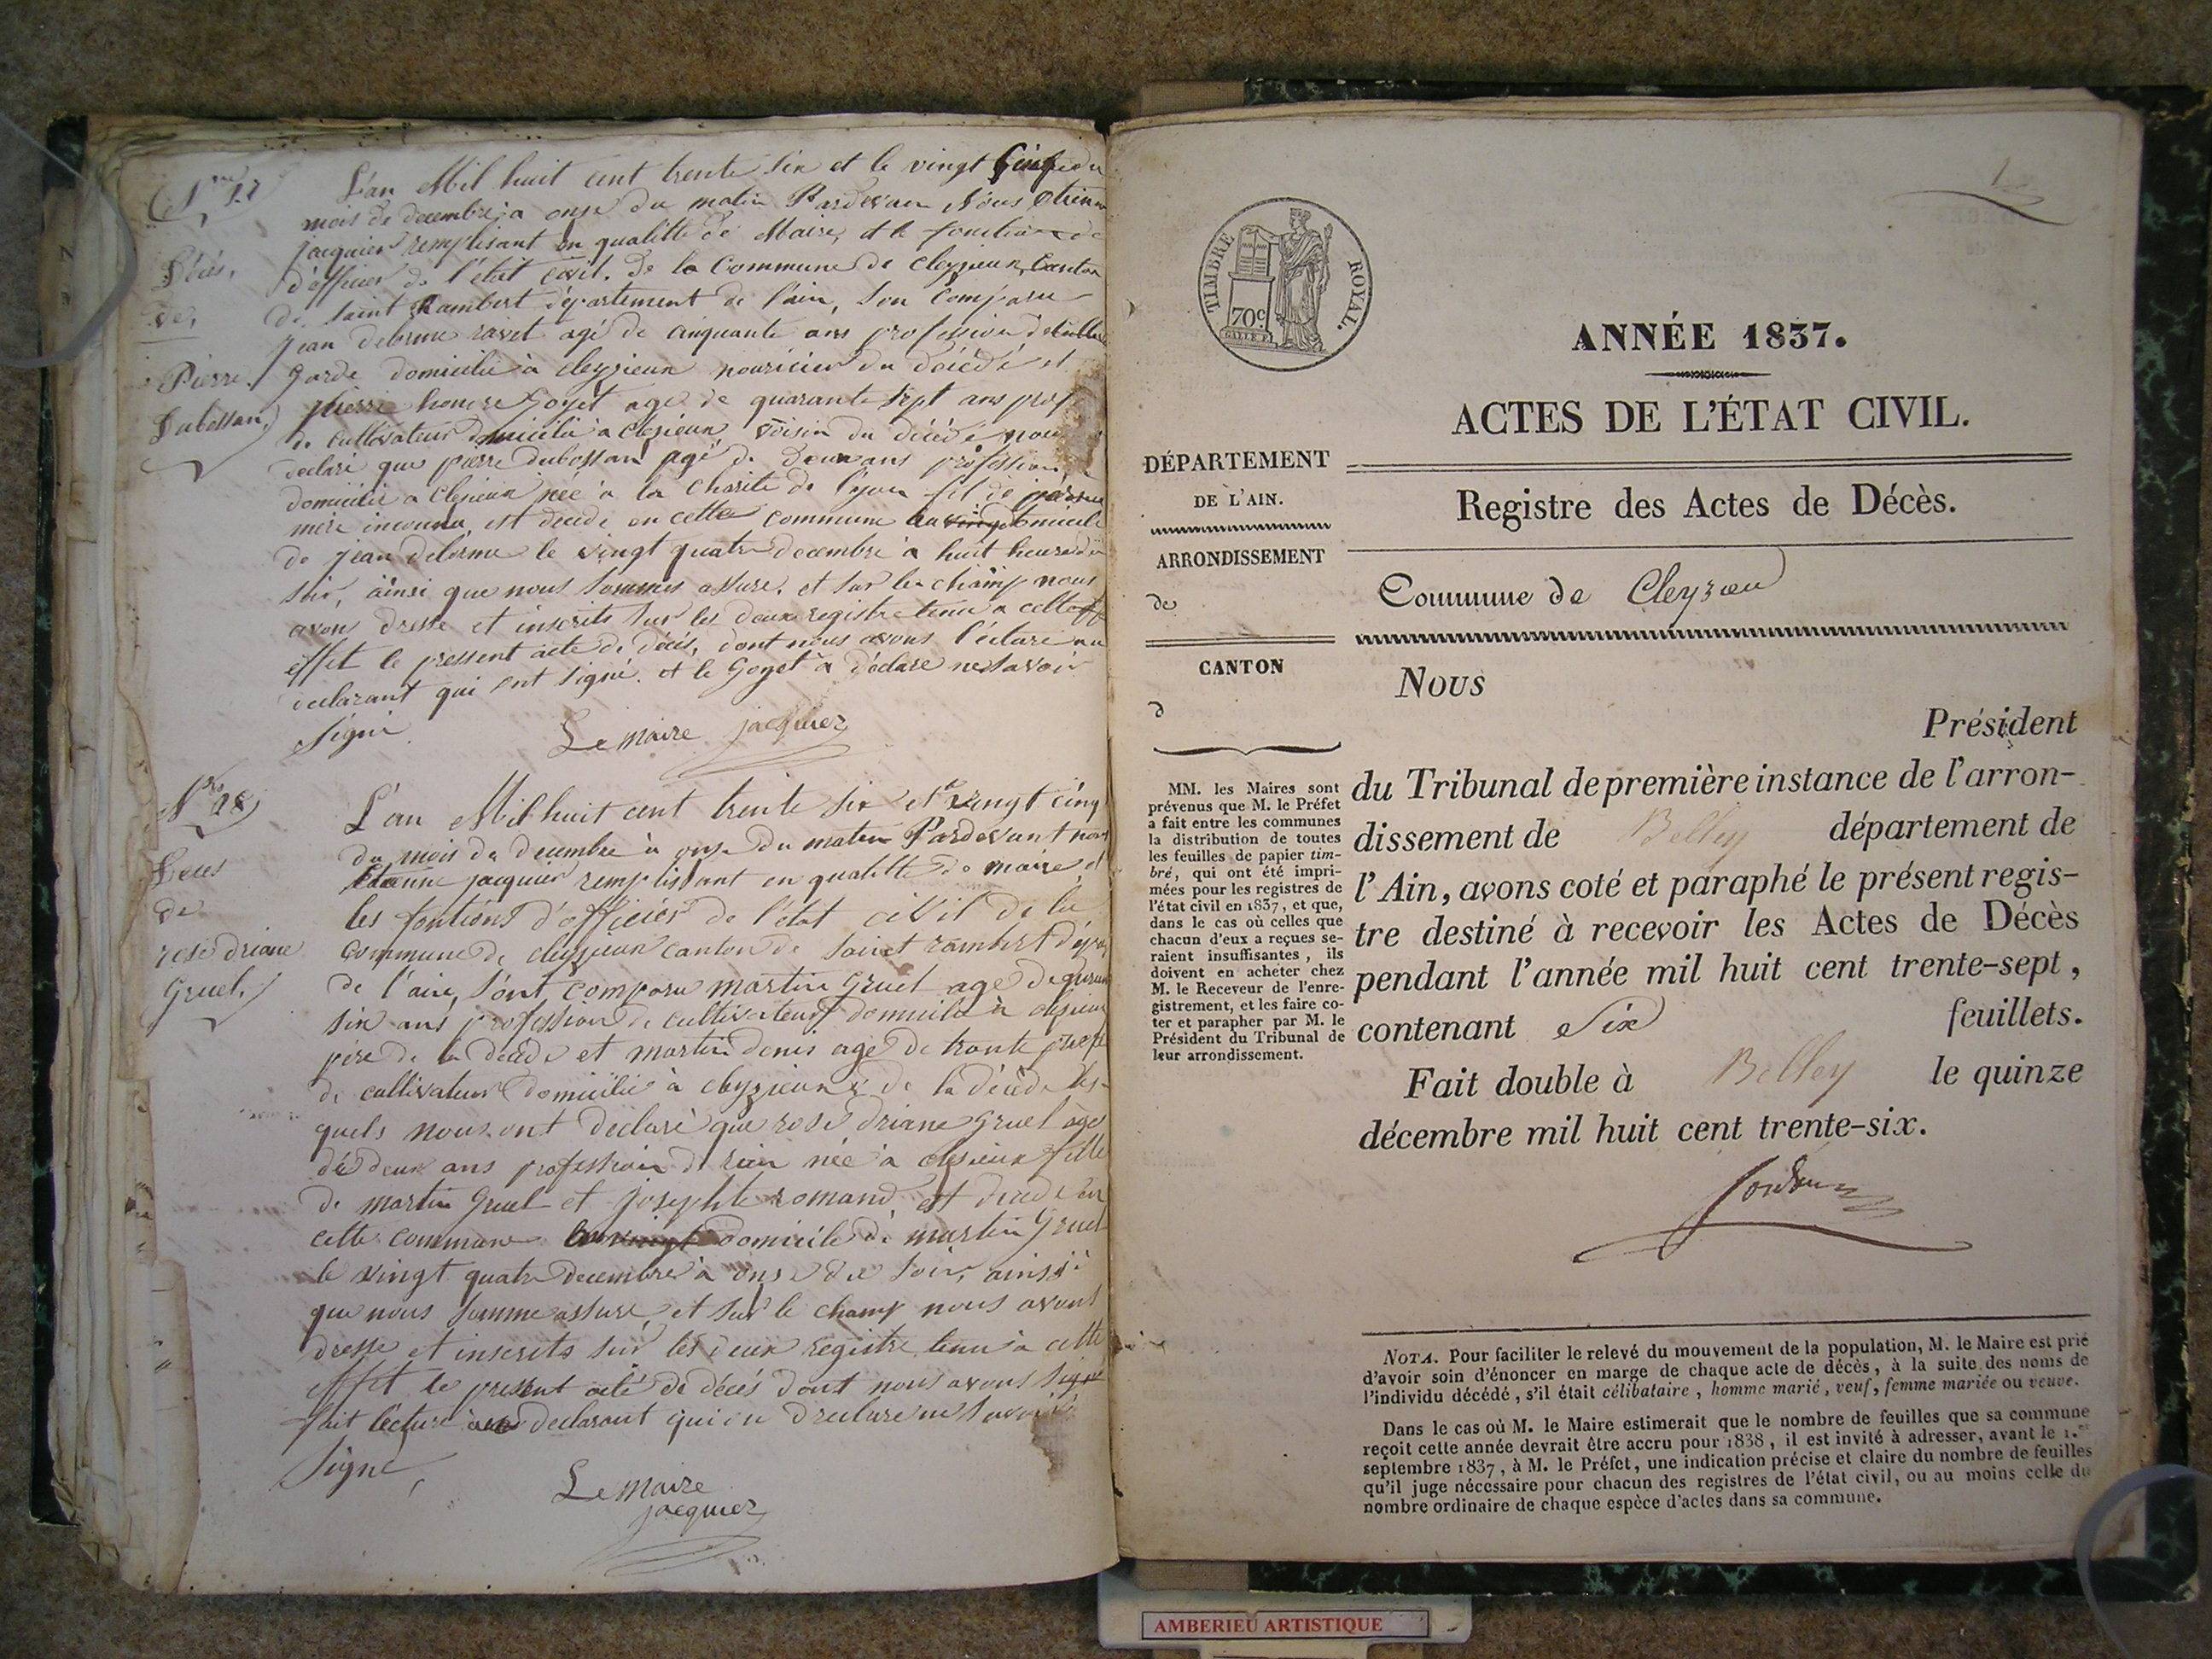 L'an Mil huit cent trente six et le vingt Cinq du
mois de decembre, a onze du matin Pardevan Nous Etienne
jacquier remplisant en qualitte de Maire, et le fonction de
d'officier de l'etat civil. de la Commune de cleyzieux, Canton
de Saint Rambert departement de l'ain, Son Comparu
jean delorme ravet agé de cinquante ans profession de
garde domicilié à cleyzieux nouricier du décédé et
pierre honore goyet age de quarante sept ans prof
de cultivateur domicilié a clezieux voisin du décédé nous
declaré que pierre dubossan agé de deux ans profession
domicilie a clezieux née a la Charité de lyon fil de
mere inconnu est decede en cette commune domicile
de jean delorme le vingt quatre decembre a huit heure du
soir, ainsi que nous sommes assure, et sur le champ nous
avons dresse et inscrits sur les deux registre tenu a cette
effet le pressent acte de décés, dont nous avons lécture au
declarant qui ont signé. et le Goyet à déclare ne savoir
signé
Le Maire jacquier
N° 17
Décés,
de,
Pierre
Dubossan
N° 18
Deces
de
rose driane
Gruel.
L'an Mil huit cent trente six et vingt cinq
du mois de decembre à onze du matin Pardevant nous
Etienne jacquier remplissant en qualitte de maire et
les fontions d'officier de l'état civil de la
commune de cleyzieux canton de saint rambert
de l'ain, sont comparu martin Gruel age de
six ans profession de cultivateur domicilie à clezieux
père de la décéde et martin denis age de trante
de cultivateur domicilié à cleyzieux de la décéde les-
quels nous ont declaré que rose driane Gruel age
de deux ans profession de rien née à clezieux fille
de martin Gruel et josephte romand, est decede en
cette commune domicile de martin Gruel
le vingt quatre decembre à onze du soir, ainssi
que nous somme assure, et sur le champ nous avons
dresse et inscrits sur les deux registre tenu a cette
effet le present acte de décés dont nous avons
fait lecture declarant qui on declare ne savoir
signe,
Le Maire
jacquier
1
TIMBRE ROYAL.
70c
ANNÉE 1837.
ACTES DE L'ÉTAT CIVIL.
DÉPARTEMENT
DE L'AIN.
Registre des Actes de Décès.
ARRONDISSEMENT
de
Commune de Cleyzieu
CANTON
d
MM. les Maires sont
prévenus que M. le Préfet
a fait entre les communes
la distribution de toutes
les feuilles de papier tim-
bré, qui ont été impri-
mées pour les registres de
l'état civil en 1837, et que,
dans le cas où celles que
chacun d'eux a reçues se-
raient insuffisantes, ils
doivent en acheter chez
M. le Receveur de l'enre-
gistrement, et les faire co-
ter et parapher par M. le
Président du Tribunal de
leur arrondissement.
Nous
Président
du Tribunal de première instance de l'arron-
dissement de Belley département de
l'Ain, avons coté et paraphé le présent regis-
tre destiné à recevoir les Actes de Décès
pendant l'année mil huit cent trente-sept,
contenant Six feuillets.
Fait double à Belley le quinze
décembre mil huit cent trente-six.
NOTA. Pour faciliter le relevé du mouvement de la population, M. le Maire est prié
d'avoir soin d'énoncer en marge de chaque acte de décès, à la suite des noms de
l'individu décédé, s'il était célibataire, homme marié, veuf, femme mariée ou veuve.
Dans le cas où M. le Maire estimerait que le nombre de feuilles que sa commune
reçoit cette année devrait être accru pour 1838, il est invité à adresser, avant le 1.er
septembre 1837, à M. le Préfet, une indication précise et claire du nombre de feuilles
qu'il juge nécessaire pour chacun des registres de l'état civil, ou au moins celle du
nombre ordinaire de chaque espèce d'actes dans sa commune.
AMBERIEU ARTISTIQUE